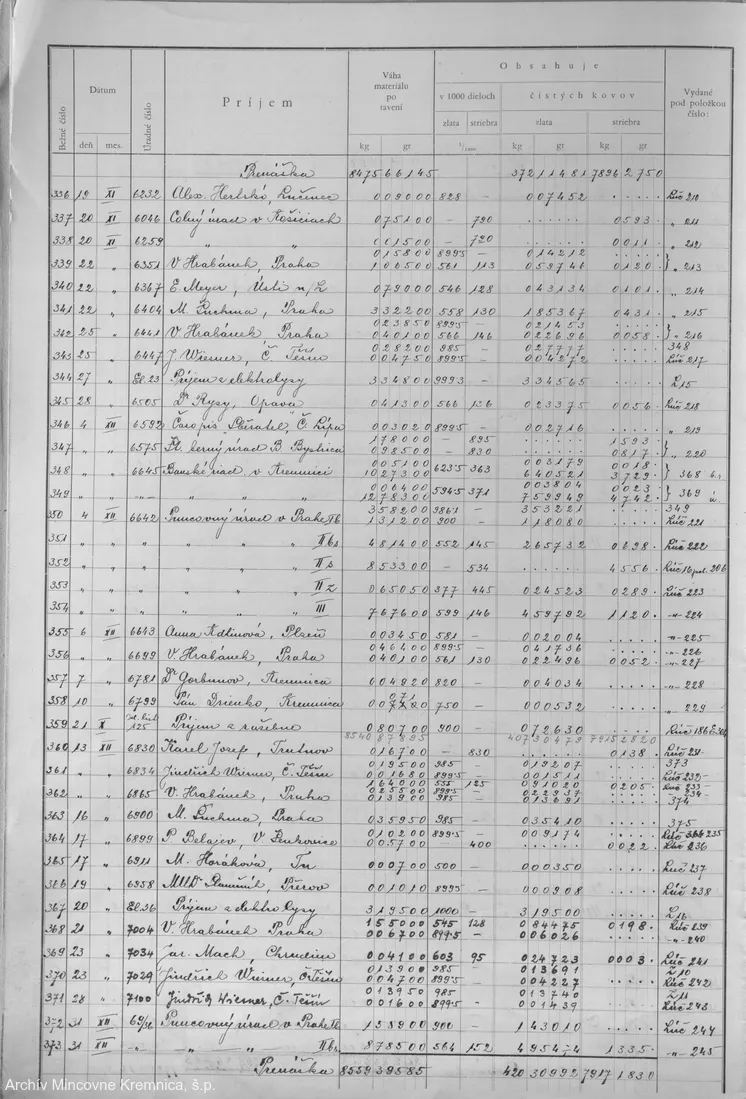 Bežné číslo | Dátum | Úradné číslo | Príjem | Váha materiálu po tavení | Obsahuje | Vydané pod položkou číslo:
deň | mes. | v 1000 dieloch | čistých kovov
zlata | striebra | zlata | striebra
kg | gr | 1/1000 | kg | gr | kg | gr
Prenáška 8475 66145 3721 1481 7896 2750
336 19 XI 6232 009000 828 007452 Lúč 210
337 20 XI 6046 Colný úrad v Košiciach 075100 – 790 0593 „ 211
338 20 XI 6259 „ „ 001500 – 720 0011 „ 212
015800 8995 014212
339 22 „ 6351 V. Hrabánek, Praha 106500 561 113 059746 0120 „ 213
340 22 „ 6367 E. Meyer, Ústí n/L 079000 546 128 043134 0101 „ 214
341 22 „ 6404 M. Fuchma, Praha 332200 558 130 185367 0431 „ 215
023850 8995 021453
342 25 „ 6441 V. Hrabánek, Praha 040100 566 146 022696 0058 „ 216
028200 985 027777 348
343 25 „ 6447 J. Wiesner, Č. Těšín 004750 8995 004272 Lúč 217
344 27 „ El. 23 Príjem z elektrolysy 334800 9993 – 334565 Z 15
345 28 „ 6505 Dr Rysy, Opava 041300 566 136 023375 0056 Lúč 218
346 4 XII 6592 Časopis „Sběratel“, Č. Lípa 003020 8995 – 002716 „ 219
178000 – 895 1593
347 „ „ 6575 Št. berný úrad B. Bystrica 098500 – 830 0817 „ 220
005100 003179 0018
348 „ „ 6645 Banské riad. v Kremnici 1027300 6235 363 640521 3729 368
006400 003804 0023
349 „ „ 1278300 5945 371 759949 4742 369
358200 9861 353221 349
350 4 XII 6642 Puncovný úrad v Prahe IIb 131200 900 118080 Lúč 221
351 „ „ „ „ „ IIbs 481400 552 145 265732 0698 Lúč 222
352 „ „ „ „ „ IIs 853300 – 534 4556 Lúč 16 pol. 206
353 „ „ „ „ „ IIz 065050 377 445 024523 0289 Lúč 223
354 „ „ „ „ „ III 767600 599 146 459792 1120 „ 224
355 6 XII 6643 Anna Adlinová, Plzeň 003450 581 – 002004 „ 225
046400 8995 – 041736 „ 226
356 „ 6699 V. Hrabánek, Praha 040100 561 130 022496 0052 „ 227
357 7 „ 6781 Dr Gorbunov, Kremnica 004920 820 – 004034 „ 228
358 10 „ 6799 Ján Dzienko, Kremnica 750 – 000532 „ 229
359 21 X 125 Príjem z ražebne 080700 900 – 072630 Lúč 186
8540 87895 4073 0479 7915 2820
360 13 XII 6830 Karel Josef, Trutnov 016700 – 830 0138 Lúč 231
019500 985 019207 373
361 „ „ 6834 Jindřich Wiesner, Č. Těšín 001680 8995 001511 Lúč 232
164000 555 125 091020 0205 233
362 „ „ 6865 V. Hrabánek, Praha 025500 8995 022937 234
013900 985 013691 374
363 16 „ 6900 M. Fuchma, Praha 035950 985 – 035410 375
010200 8995 – 009174 235
364 17 „ 6899 P. Belajev, V. 005700 – 400 0022 Lúč 236
365 17 „ 6911 M. Horáková, Tn 000700 500 – 000350 Lúč 237
366 19 „ 6958 MUDr Přerov 001010 8995 – 000908 Lúč 238
367 20 „ El. 36 Príjem z elektrolysy 319500 1000 – 319500 Z 16
155000 545 128 084475 0198 Lúč 239
368 21 „ 7004 V. Hrabánek Praha 006700 8995 – 006026 „ 240
369 23 „ 7034 Jar. Mach, Chrudim 004100 603 95 024723 0003 Lúč 241
013900 985 – 013691 Z 10
370 23 „ 7029 Jindřich Wiesner, Č. Těšín 004700 8995 – 004227 Lúč 242
013950 985 013740 Z 11
371 28 „ 7100 Jindřich Wiesner, Č. Těšín 001600 8995 – 001439 Lúč 243
372 31 XII Puncovný úrad v Prahe IIb 158900 900 – 143010 Lúč 244
373 31 XII „ „ „ IIbs 878500 564 152 495474 1335 „ 245
Prenáška 8559 39585 420 30992 7917 1830
Archív Mincovne Kremnica, š.p.